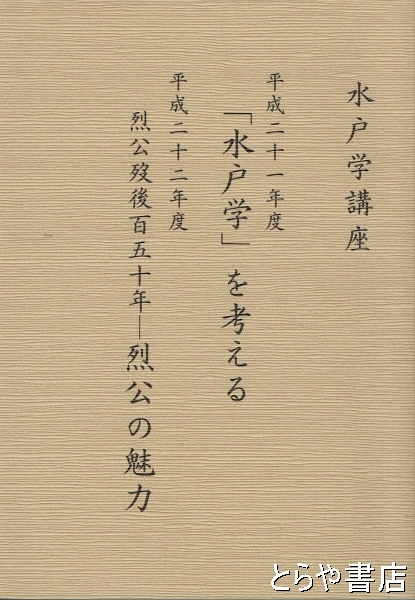 水戸学講座
平成二十一年度
「水戸学」を考える
平成二十二年度
烈公歿後百五十年―烈公の魅力
とらや書店